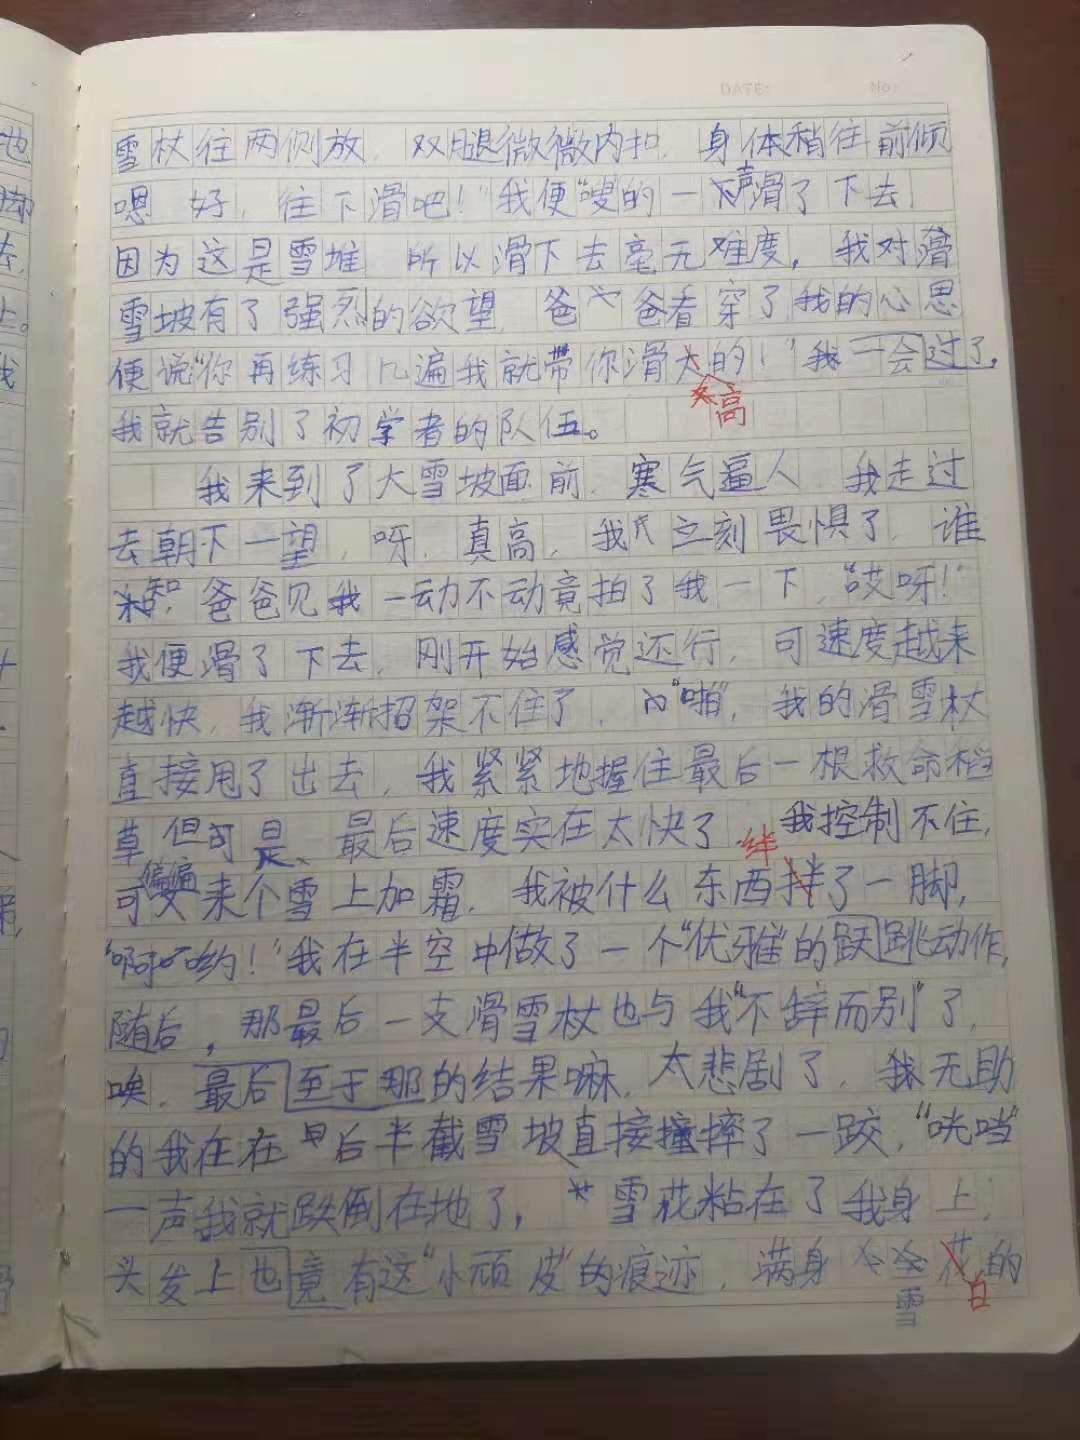 DATE: NO:
雪杖往两侧放,双腿微微内扣,身体稍往前倾
嗯,好,往下滑吧!"我便"嗖的一声滑了下去,
因为这是雪堆,所以滑下去毫无难度,我对滑
雪坡有了强烈的欲望,爸爸看穿了我的心思
便说"你再练习几遍我就带你滑高的!"我一会过了,
我就告别了初学者的队伍。
我来到了大雪坡面前,寒气逼人,我走过
去朝下一望,呀,真高,我立刻畏惧了,谁
知,爸爸见我一动不动竟拍了我一下,"哎呀!"
我便滑了下去,刚开始感觉还行,可速度越来
越快,我渐渐招架不住了,"啪",我的滑雪杖
直接甩了出去,我紧紧地握住最后一根救命稻
草但可是、最后速度实在太快了,我控制不住,
可偏偏来个雪上加霜,我被什么东西绊了一脚,
"啊哟!"我在半空中做了一个"优雅"的跃跳动作,
随后,那最后一支滑雪杖也与我"不辞而别"了,
唉,最后至于那的结果嘛,太悲剧了,我无助
的我在在后半截雪坡直接摔了一跤,"咣当"
一声我就跌倒在地了,雪花粘在了我身上,
头发上也竟有这"小顽皮"的痕迹,满身雪白的